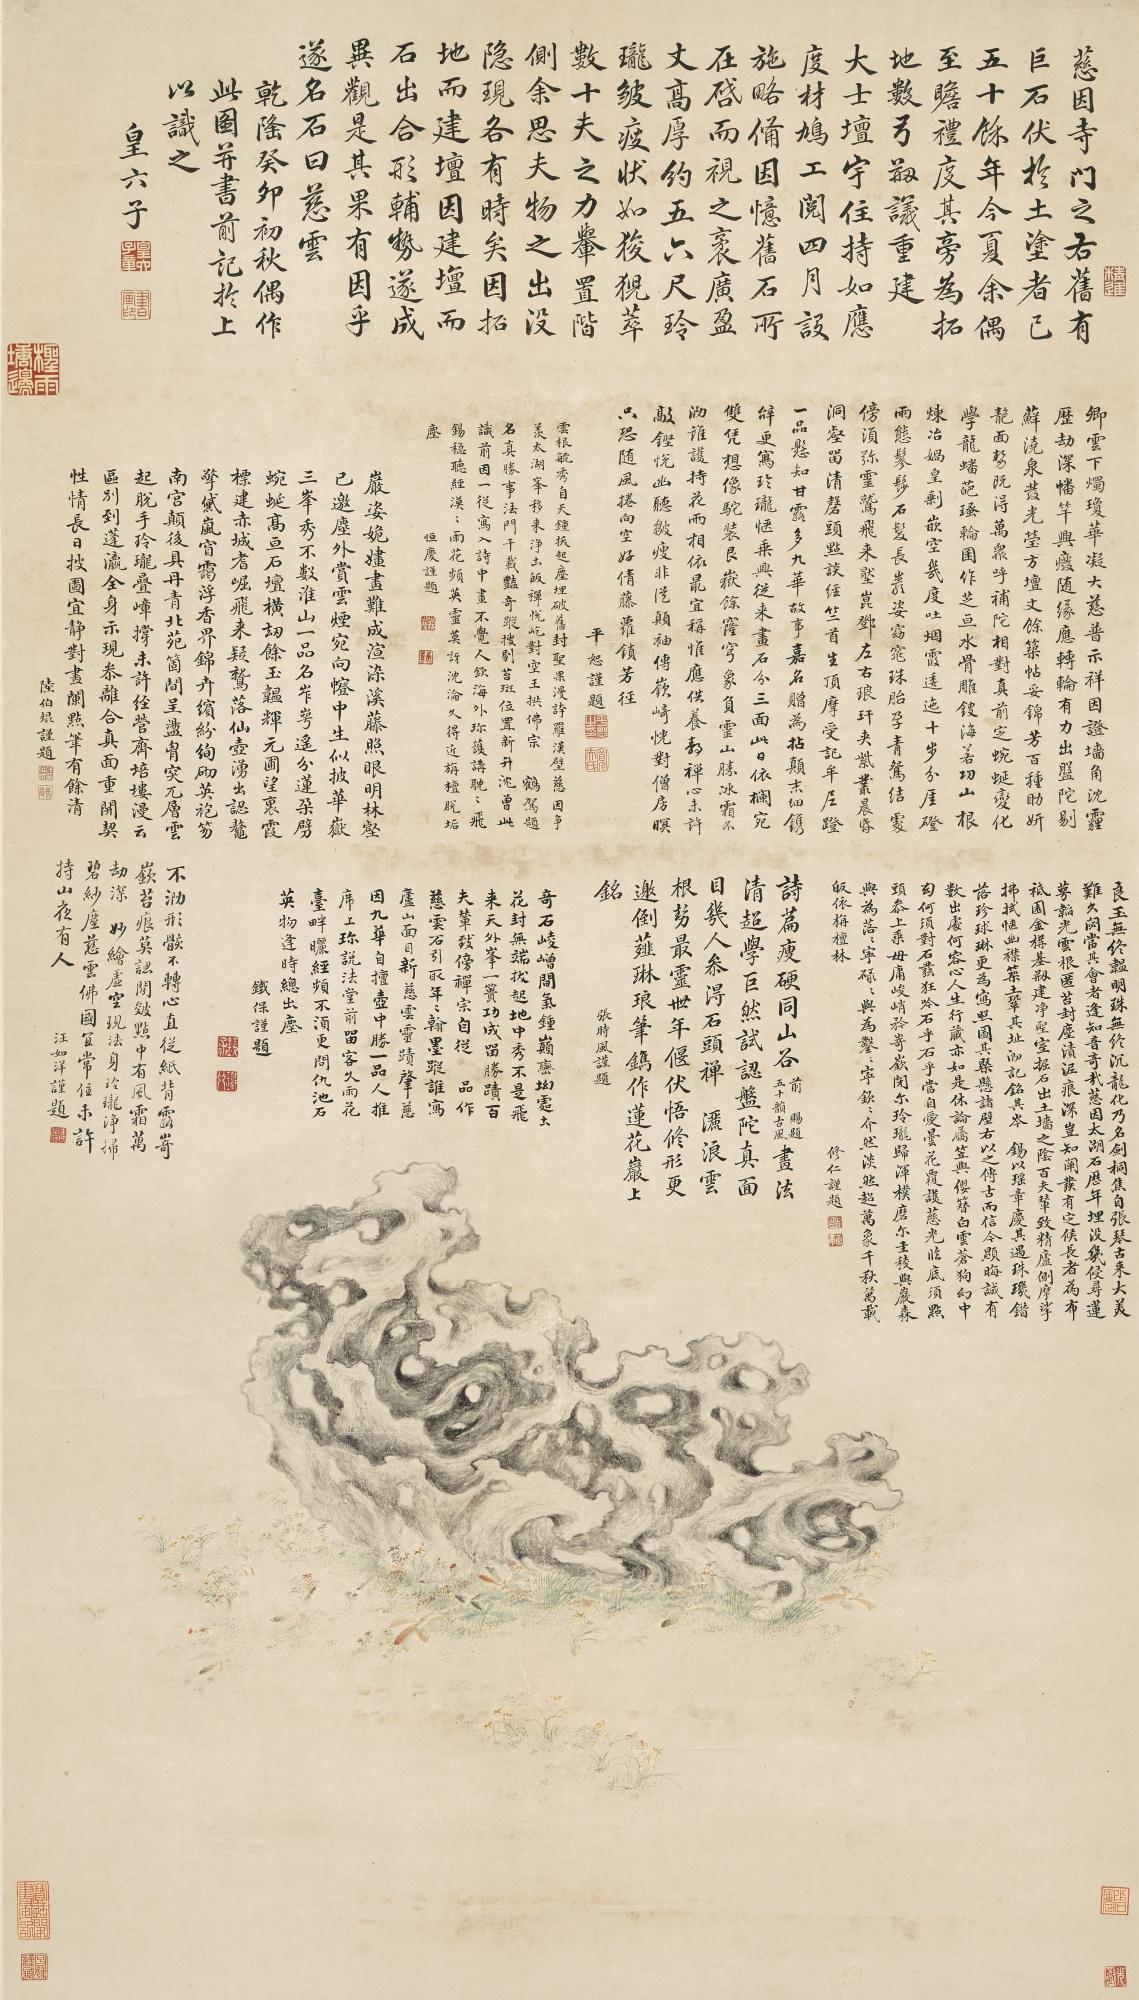 慈因寺門之右舊有
巨石伏於土塗者已
五十餘年今夏余偶
至瞻禮度其旁為拓
地數弓茲議重建
大士壇宇住持如應
度材鳩工閱四月設
施略備因憶舊石所
在啓而視之袤廣盈
丈高厚約五六尺玲
瓏皴瘦狀如狻猊萃
數十夫之力轝置階
側余思夫物之出没
隐現各有時矣因拓
地而建壇因建壇而
石出合形輔勢遂成
異觀是其果有因乎
遂名石曰慈雲
乾隆癸卯初秋偶作
此圖并書前記於上
以識之
皇六子
卿雲下燭瓊華凝大慈普示祥因證墻角沈霾
歷劫深幡竿興癈随緣應轉輪有力出盤陀剔
蘚澆泉發光瑩方壇丈餘築帖妥錦芳百種助妍
靘面勢既得萬衆呼補陀相對真前定蜿蜒變化
學龍蟠葩璚輪囷作芝亘水骨雕鎪海若功山根
煉冶媧皇剩嵌空幾度吐烟霞透迤十步分厓磴
雨態鬖髿石髪長嵐姿窈窕珠胎孕青鴛結
傍須弥靈鷲飛来壓崑鄧左右琅玕夾紫叢晨昏
洞壑留清磬頭點談經竺首生頂摩受記牟尼蹬
一品懸知甘露多九華故事嘉名贈為拈顛末細鐫
辭更寫玲瓏愜乘興從来畫石分三面此日依欄宛
雙凭想像駝裝艮嶽餘窿穹象負靈山勝冰霜不
泐誰護持花雨相依最宜稱惟應供養静禪心未許
敲鏗悅幽聽皺瘦非從顛袖傳嶔崎恍對僧房暝
只恐随風捲向空好倩藤蘿鎖芳径
平恕謹題
雲根毓秀自天鍾拔起塵埋破舊封聖果漫誇羅漢壁慈因争
羡太湖峯移来浄土皈禪悅屹對空王拱佛宗　鶴駕題
名真勝事法門千載豔奇蹤搜剔苔斑位置新升沈曾此
識前因一從寫入詩中畫不覺人欽海外珍護講眈眈飛
錫穏聽經漠漠雨花頻英靈莫訝沈淪久得近旃檀脫垢
塵
恒慶謹題
巖姿姽嫿畫難成渲染溪藤照眼明林壑
已邀塵外賞雲煙宛向㡡中生似披華嶽
三峯秀不數淮山一品名岝崿遥分蓮朶劈
蜿蜒高亘石壇横刧餘玉韞輝元圃望裏霞
標建赤城者崛飛来疑鷲落仙壺湧出認鼇
擎黛嵐窅靄浮香界錦卉繽紛絢砌英袍笏
南宫顛後具丹青北苑箇間呈盪胷突兀層雲
起脫手玲瓏疊嶂撐未許径營齊培塿漫云
區別到蓬瀛全身示現叅離合真面重開契
性情長日披圖宜静對畫闌點筆有餘清
陸伯焜謹題
良玉無終韞明珠無終沉龍化乃名劍桐焦自張琴古来大美
難久閟當其會者逢知音奇哉慈因太湖石歷年埋没幾侵尋蓮
萼韜光雲根匿苔封塵漬泥痕深豈知闡發有定候長者為布
祇園金擇基剏建浄聖室掘石出土墻之陰百夫輦致精廬側摩挲
拂拭愜幽襟築土輦其址泐記銘其岑　錫以瑶章慶其遇珠璣錯
落珍球琳更為寫照圖其槩懸諸壁右以之傳古而信今顯晦誠有
數出處何容心人生行藏亦如是休論屩笠與纓簪白雲蒼狗幻中
幻何須對石發狂吟石乎石乎當自愛曇花覆護慈光臨底須點
頭叅上乘毋庸峻峭矜嵜嶔閟尔玲瓏歸渾樸磨尔圭稜與巖森
與為落落寧碌碌與為鑿鑿寧欽欽介然淡然超萬象千秋萬載
皈依栴檀林
修仁謹題
詩萹瘦硬同山谷前賜題五十韻古風畫法
清超學巨然試認盤陀真面
目幾人叅得石頭禪　濕浪雲
根勢最靈卅年偃伏悟修形更
邀倒薤琳琅筆鐫作蓮花巖上
銘
張時風謹題
奇石崚嶒間氣鍾巔巒坳處土
花封無端拔起地中秀不是飛
来天外峯一簣功成留勝蹟百
夫輦致傍禪宗自從　品作
慈雲石引取年年翰墨蹤誰寫
廬山面目新慈雲靈蹟肇慈
因九華自擅壺中勝一品人推
席上珍説法堂前留客久雨花
臺畔曬經頻不須更問仇池石
英物逢時總出塵
鐵保謹題
不泐形骸不轉心直従紙背露嵜
嶔苔痕莫認閒皴點中有風霜萬
劫深　妙繪虚空現法身玲瓏浄掃
碧紗塵慈雲佛國宜常住未許
持山夜有人
汪如洋謹題